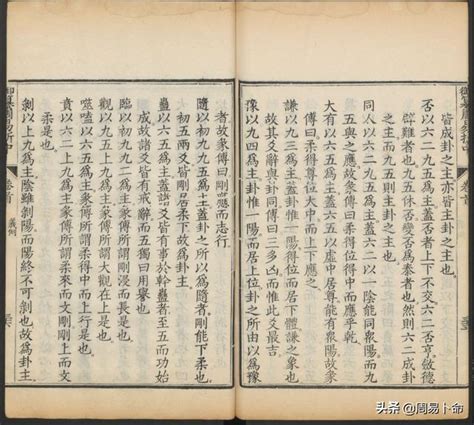 皆成卦之主亦皆主卦之主也
否以六二九五為主蓋否者上下不交六二否亨斂德
辟難者也九五休否變否為泰者也然則六二成卦
之主而九五則主卦之主也
同人以六二九五為主蓋六二以一陰能同衆陽而九
五與之應故彖傳曰柔得位得中而應乎乾
大有以六五為主蓋六五以虛中居尊能有衆陽故彖
傳曰柔得尊位大中而上下應之
謙以九三為主蓋卦惟一陽得位而居下體謙之象也
故其爻辭與卦同傳曰三多凶而惟此爻最吉
豫以九四為主卦惟一陽而居上位卦之所由以為豫
者故彖傳曰剛應而志行
隨以初九九五為主蓋卦之所以為隨者剛能下柔也
初五兩爻皆剛居柔下故為卦主
蠱以六五為主蓋諸爻皆有事於幹蠱者至五而功始
成故諸爻皆有戒辭而五獨曰用譽也
臨以初九九二為主彖傳所謂剛浸而長是也
觀以九五上九為主彖傳所謂大觀在上是也
噬嗑以六五為主彖傳所謂柔得中而上行是也
賁以六二上九為主彖傳所謂柔來而文剛剛上而文
柔是也
剝以上九為主陰雖剝陽而陽終不可剝也故為卦主
御纂周易折中
卷首 義例
头条 @周易卜命